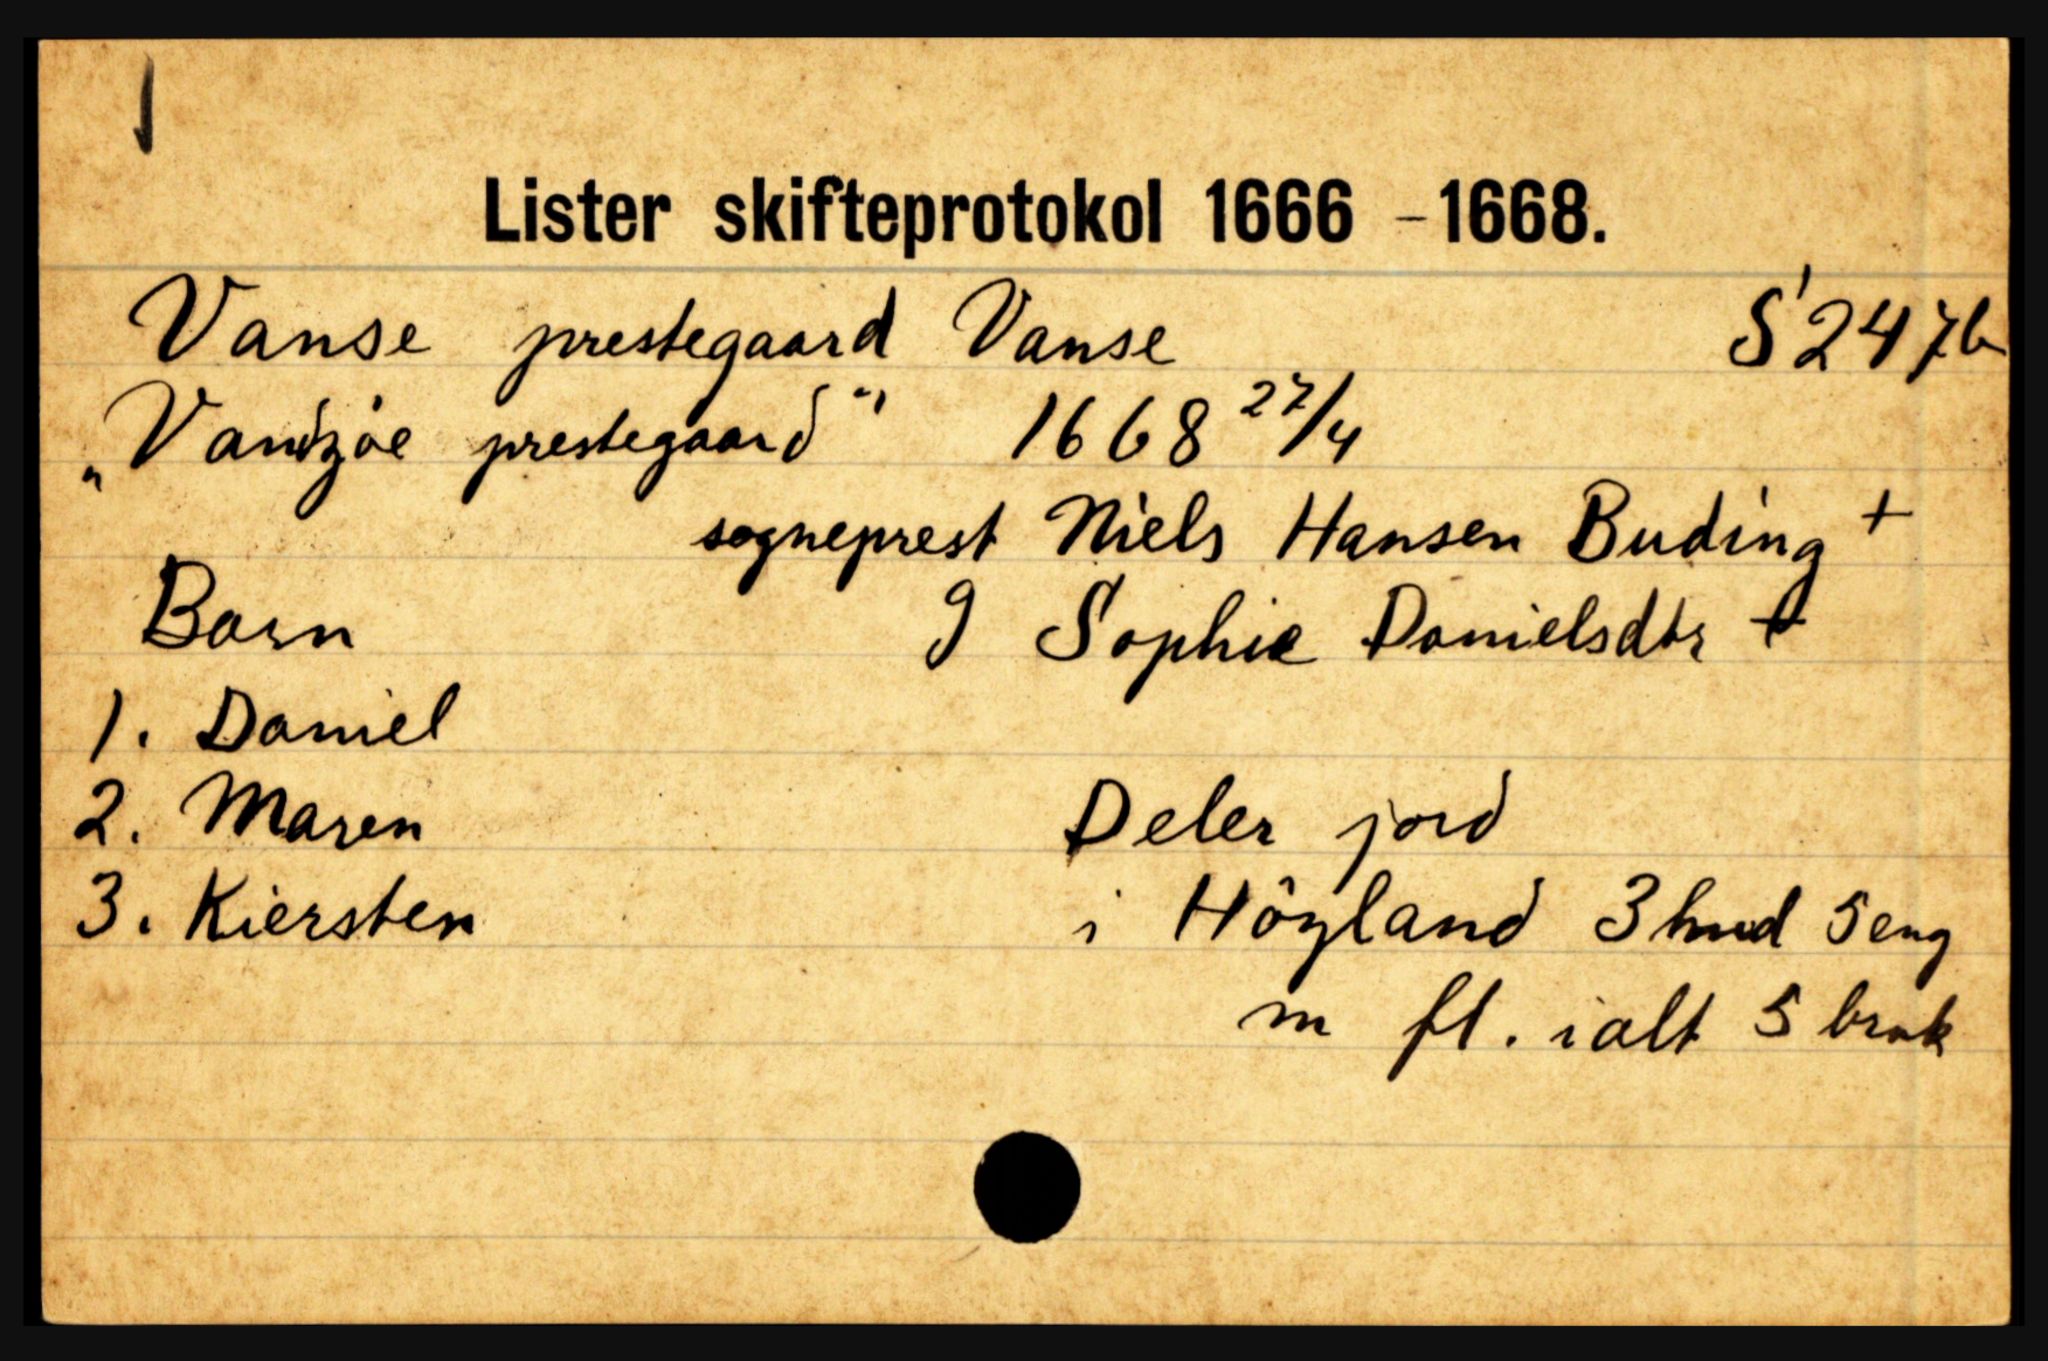 1
Lister skifteprotokol 1666 - 1668.
Vanse prestegaard Vanse S 247b
„Vandzøe prestegaard" 1668 27/4
sogneprest Niels Hansen Buding +
Barn g Sophie Danielsdtr +
1. Daniel
2. Maren Deler jord
3. Kiersten i Höyland 3 hud 5 eng
m fl. ialt 5 bruk